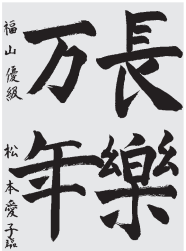 長樂
万年
福山優級 松本愛子臨